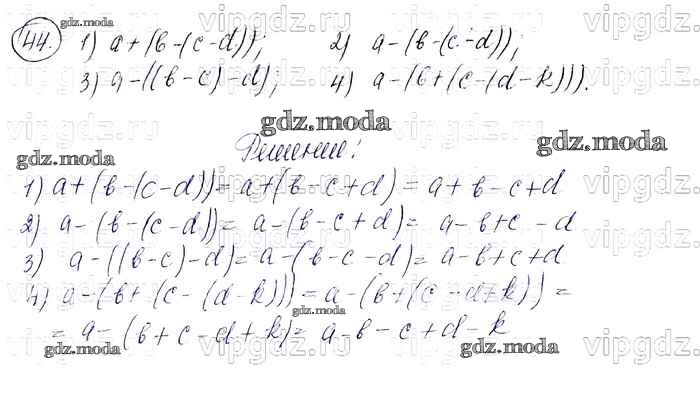 44. 1) a+(b-(c-d)); 2) a-(b-(c-d));
3) a-((b-c)-d); 4) a-(b+(c-(d-k))).
Решение:
1) a+(b-(c-d))=a+(b-c+d)=a+b-c+d
2) a-(b-(c-d))=a-(b-c+d)=a-b+c-d
3) a-((b-c)-d)=a-(b-c-d)=a-b+c+d
4) a-(b+(c-(d-k)))=a-(b+(c-d+k))=
=a-(b+c-d+k)=a-b-c+d-k
gdz.moda
gdz.moda
gdz.moda
gdz.moda
gdz.moda
gdz.moda
gdz.moda
vipgdz.ru
vipgdz.ru
vipgdz.ru
vipgdz.ru